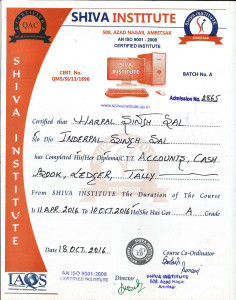 SHIVA INSTITUTE
508, AZAD NAGAR, AMRITSAR
AN ISO 9001 - 2008
CERTIFIED INSTITUTE
QAC
CERT. No.
QMS/SI/13/1696
SHIVA
INSTITUTE
BATCH No. A
www.shivainstitute.co.in
Admission No. 2865
SHIVA INSTITUTE
Certified that HARPAL SINGH SAL
D/o INDERPAL SINGH SAL
has Completed His/Her Diploma/C.T.T. ACCOUNTS, CASH
BOOK, LEDGER, TALLY
From SHIVA INSTITUTE The Duration of the Course
is 11 APR. 2016 To 10 OCT. 2016 He/She Has Got A Grade
Date 18 OCT. 2016
Course Co-Ordinator
IAQS
AN ISO 9001-2008
CERTIFIED INSTITUTE
Director
SHIVA INSTITUTE
508, Azad Nagar
Amritsar